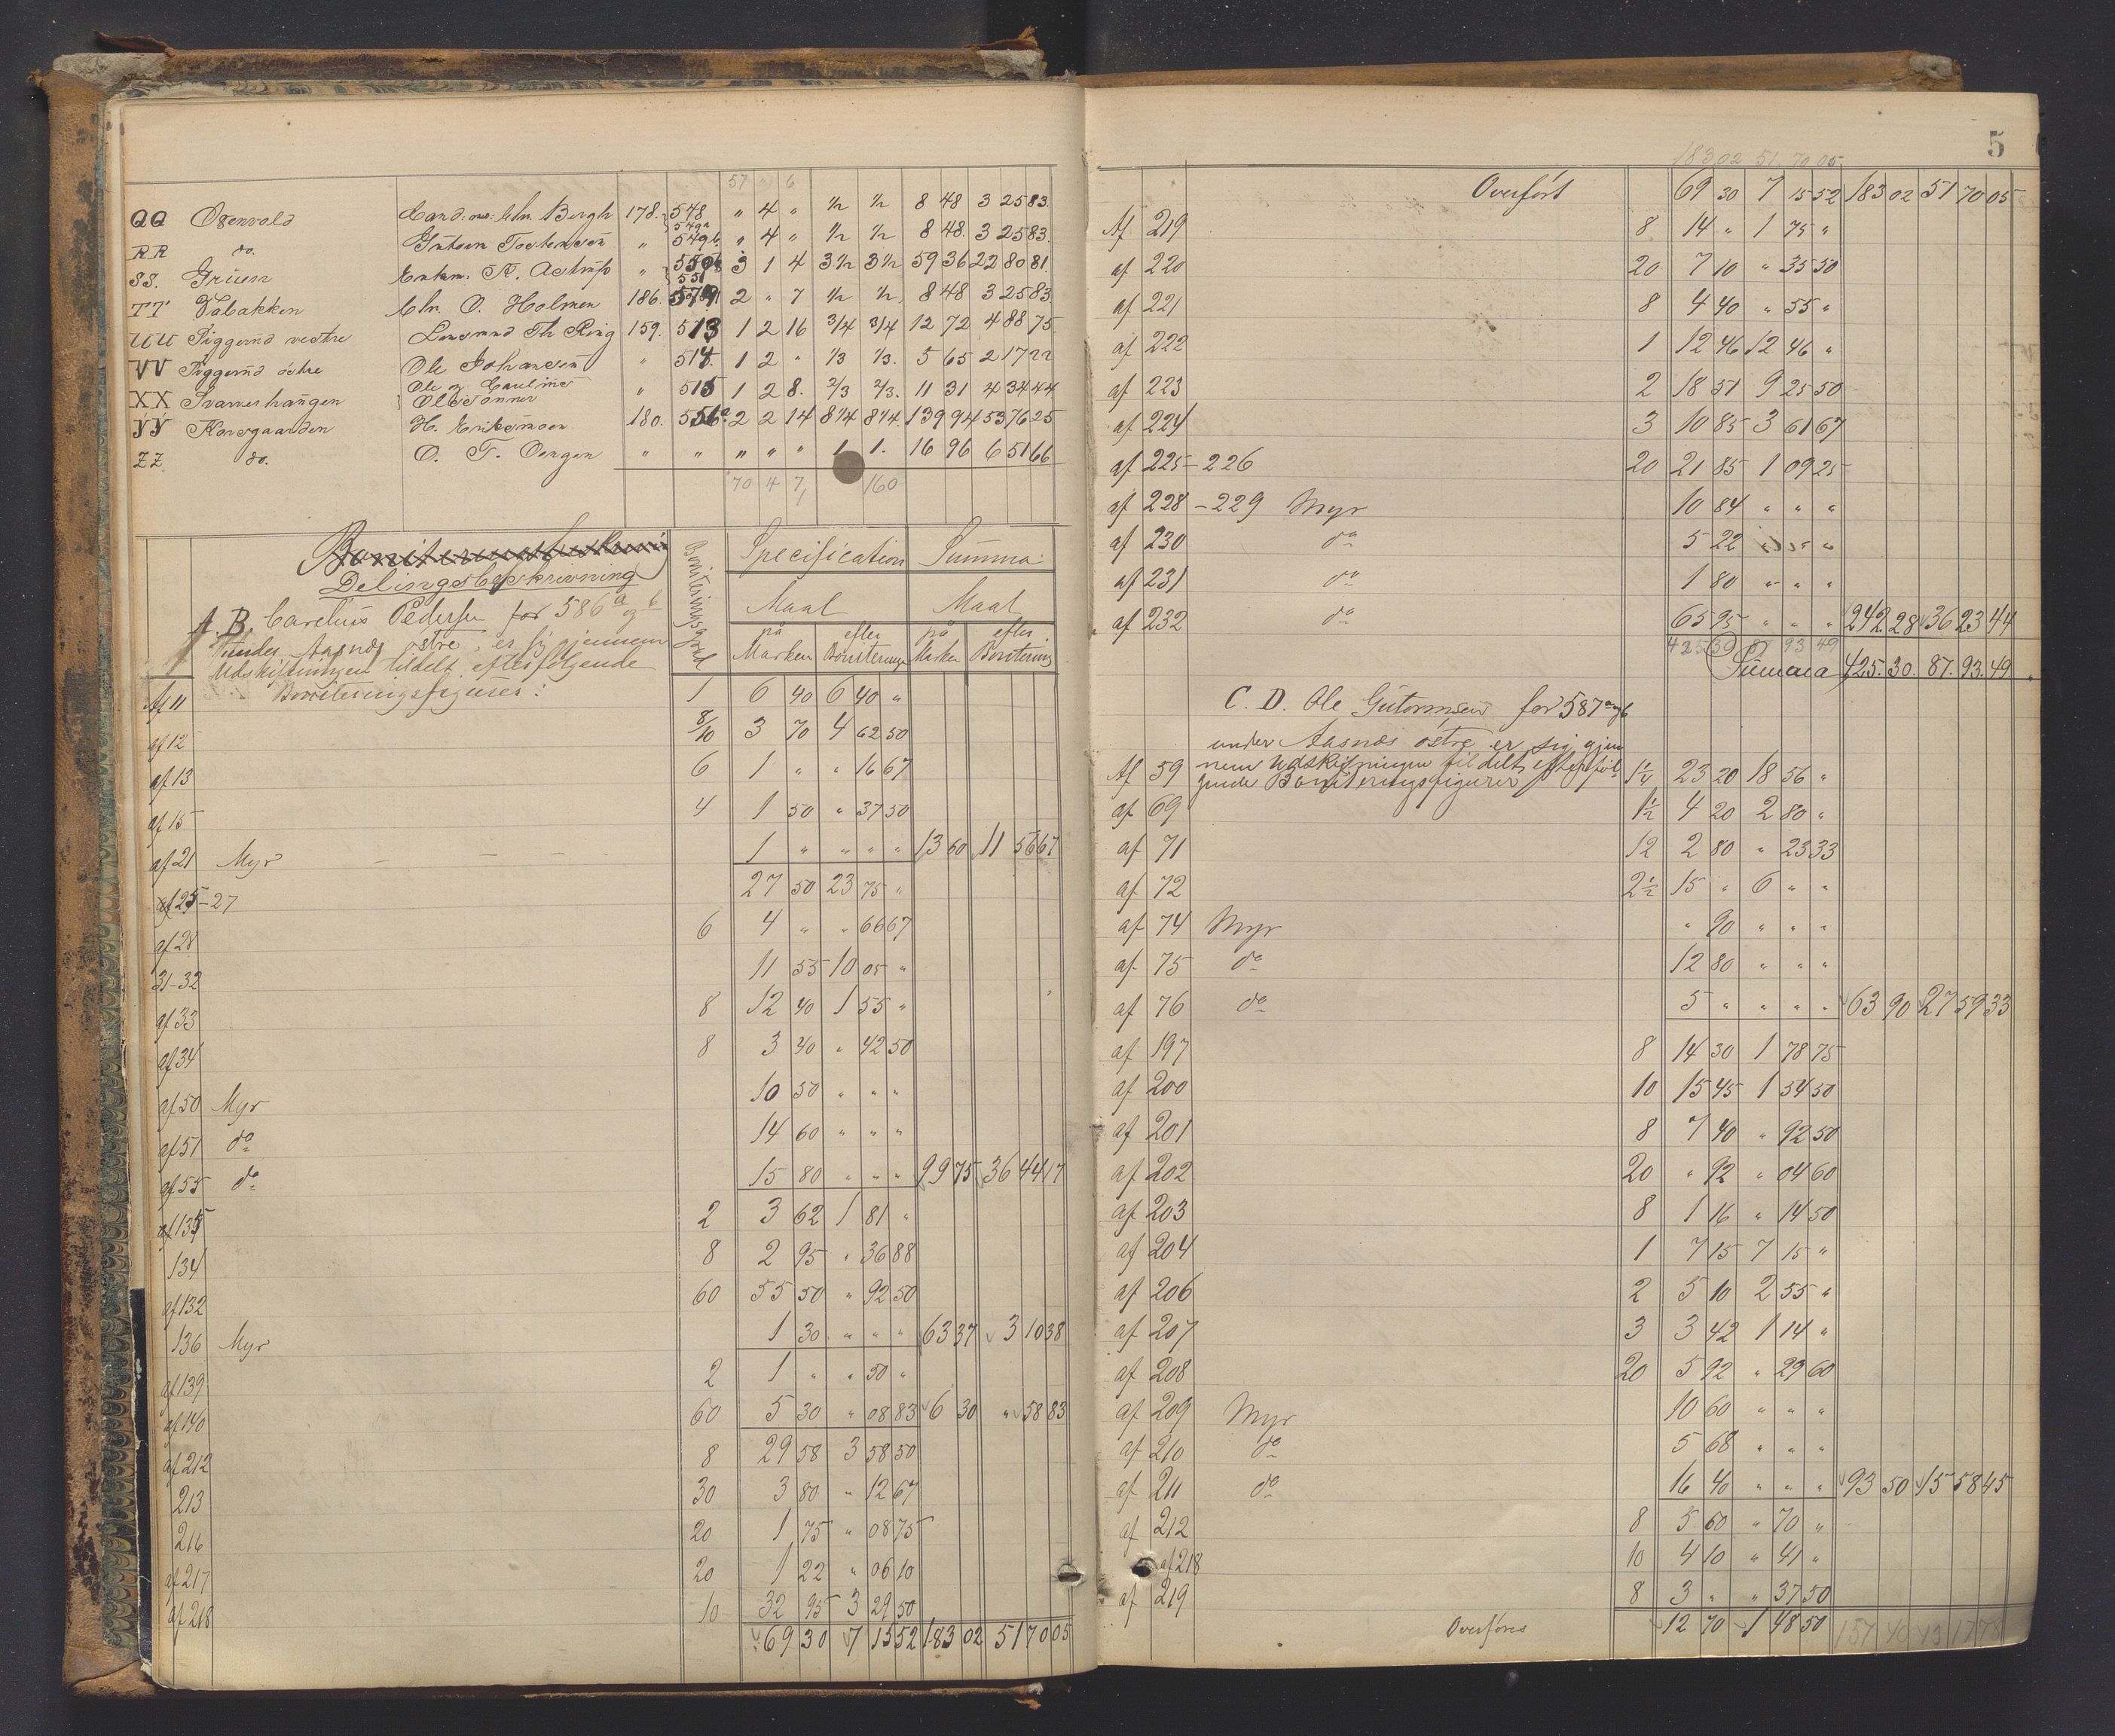 57 6
QQ Osenvold Cand: me: Chr. Bergh 178. 548 " 4 " ½ ½ 8 48 3 25 83
RR do. Gutorm Tostensen " 549a 549b " 4 " ½ ½ 8 48 3 25 83
SS. Gruen Enkm. R. Astrup " 550b 551 3 1 4 3½ 3½ 59 36 22 80 81
TT Vabakken Chr. O. Holmen 186. 579 2 " 7 ½ ½ 8 48 3 25 83
UU Piggerud vestre Lensmnd Th Ring 159. 513 1 2 16 3/4 3/4 12 72 4 88 75
VV Piggerud östre Ole Johansen " 514. 1 2 " 1/3 1/3. 5 65 2 17 22
XX Svarverhaugen Ole og Caroline " 515 1 2 8. 2/3 2/3. 11 31 4 34 44
YY Konsgaarden H. Eriksmoen 180. 556a 2 2 14 8 1/4 8 1/4. 139 94 53 76 25
ZZ do. O. T. Oengen " " " " " 1 1. 16 96 6 51 66
70 4 7 160
Delingsbeskrivning
Boniteringsgrad Specification Summa
Maal Maal
på Marken efter Bonitering på Marken efter Bonitering
A. B. Carelius Pedersen for 586 a og b
under Aasnæs östre, er sig gjennem
Udskiftningen tildelt efterfölgende
Boniteringsfigurer:
Af 11 1 6 40 6 40 "
af 12 8/10 3 70 4 62 50
af 13 6 1 " " 16 67
af 15 4 1 50 " 37 50
af 21 Myr 1 " " " " 13 60 11 56 67
af 25-27 27 50 23 75 "
af 28 6 4 " " 66 67
31-32 11 55 10 05 "
af 33 8 12 40 1 55 "
af 34 8 3 40 " 42 50
af 50 Myr 10 50 " " "
af 51 do 14 60 " " "
af 55 do 15 80 " " " 99 75 36 44 17
af 135 2 3 62 1 81 "
134 8 2 95 " 36 88
af 132 60 55 50 " 92 50
136 Myr 1 30 " " " 63 37 3 10 38
af 139 2 1 " " 50 "
af 140 60 5 30 " 08 83 6 30 " 58 83
af 212 8 29 58 3 58 50
213 30 3 80 " 12 67
216 20 1 75 " 08 75
af 217 20 1 22 " 06 10
af 218 10 32 95 3 29 50
69 30 7 15 52 183 02 51 70 05
5
183 02 51 70 05
Overfört 69 30 7 15 52 183 02 51 70 05
Af 219 8 14 " 1 75 "
af 220 20 7 10 " 35 50
af 221 8 4 40 " 55 "
af 222 1 12 46 12 46 "
af 223 2 18 51 9 25 50
af 224 3 10 85 3 61 67
af 225-226 20 21 85 1 09 25
af 228-229 Myr 10 84 " " "
af 230 do 5 22 " " "
af 231 do 1 80 " " "
af 232 do 65 95 " " " 242 28 36 23 44
425 30 87 93 49
Summa 425. 30. 87. 93. 49.
C. D. Ole Gutormsen for 587 a og b
under Aasnæs östre er sig gjen
nem Udskiftningen tildelt efterföl-
gende Boniteringsfigurer
Af 59 1¼ 23 20 18 56 "
af 69 1½ 4 20 2 80 "
af 71 12 2 80 " 23 33
af 72 2½ 15 " 6 " "
af 74 Myr " 90 " " "
af 75 do 12 80 " " "
af 76 do 5 " " " " 63 90 27 59 33
af 197 8 14 30 1 78 75
af 200 10 15 45 1 54 50
af 201 8 7 40 " 92 50
af 202 20 " 92 " 04 60
af 203 8 1 16 " 14 50
af 204 1 7 15 7 15 "
af 206 2 5 10 2 55 "
af 207 3 3 42 1 14 "
af 208 20 5 92 " 29 60
af 209 Myr 10 60 " " "
af 210 do 5 68 " " "
af 211 do 16 40 " " " 93 50 15 58 45
af 212 8 5 60 " 70 "
af 218 10 4 10 " 41 "
af 219 8 3 " " 37 50
Overföres 12 70 1 48 50 157 40 43 17 78